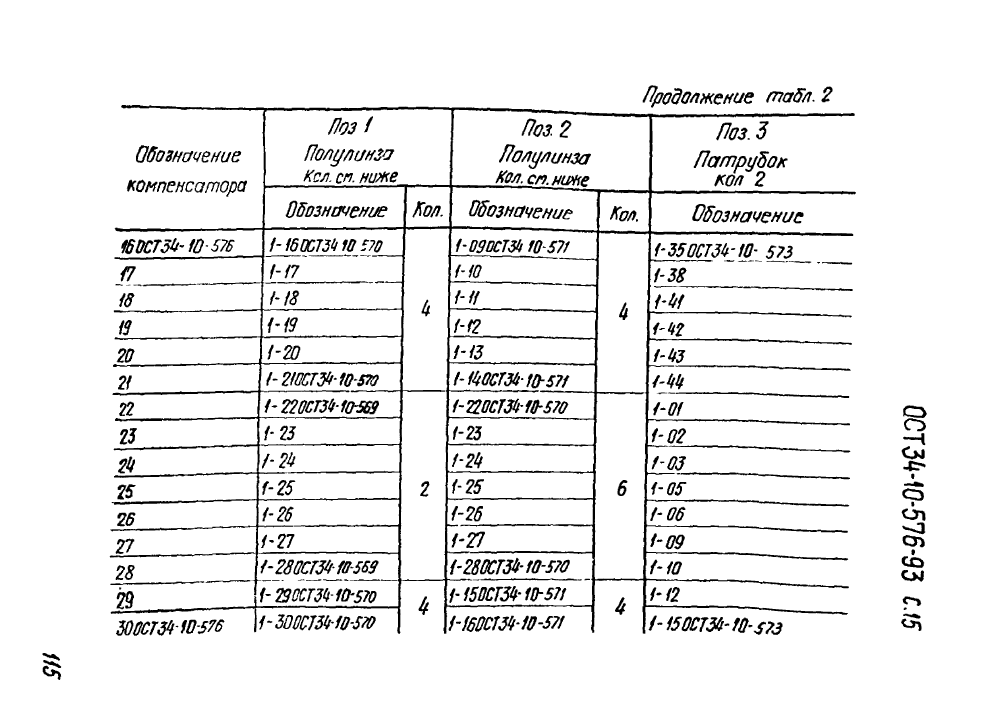 Продолжение табл. 2
Обозначение компенсатора | Поз 1 Полулинза Кол. см. ниже | Поз. 2 Полулинза Кол. см. ниже | Поз. 3 Патрубок кол 2
Обозначение | Кол. | Обозначение | Кол. | Обозначение
16 ОСТ34-10-576 | 1-16 ОСТ34 10 570 | 4 | 1-09 ОСТ34 10-571 | 4 | 1-35 ОСТ34-10-573
17 | 1-17 | 1-10 | 1-38
18 | 1-18 | 1-11 | 1-41
19 | 1-19 | 1-12 | 1-42
20 | 1-20 | 1-13 | 1-43
21 | 1-21 ОСТ34-10-570 | 1-14 ОСТ34-10-571 | 1-44
22 | 1-22 ОСТ34-10-569 | 2 | 1-22 ОСТ34-10-570 | 6 | 1-01
23 | 1-23 | 1-23 | 1-02
24 | 1-24 | 1-24 | 1-03
25 | 1-25 | 1-25 | 1-05
26 | 1-26 | 1-26 | 1-06
27 | 1-27 | 1-27 | 1-09
28 | 1-28 ОСТ34-10-569 | 1-28 ОСТ34-10-570 | 1-10
29 | 1-29 ОСТ34-10-570 | 4 | 1-15 ОСТ34-10-571 | 4 | 1-12
30 ОСТ34-10-576 | 1-30 ОСТ34-10-570 | 1-16 ОСТ34-10-571 | 1-15 ОСТ34-10-573
ОСТ34-10-576-93 с.15
115